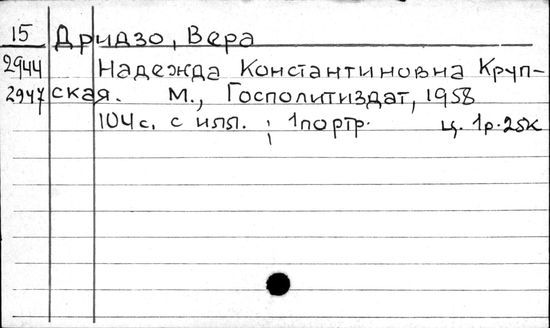 15 Дридзо, Вера
2944 Надежда Константиновна Круп-
2947 ская. М., Госполитиздат, 1958
104 с. с илл. ; 1 портр. ц. 1р. 25к